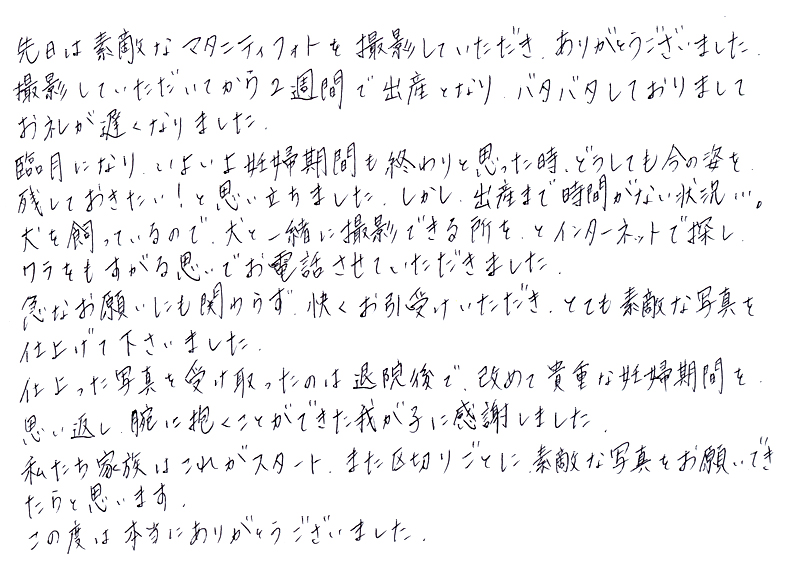 先日は素敵なマタニティフォトを撮影していただき、ありがとうございました。
撮影していただいてから2週間で出産となり、バタバタしておりまして
お礼が遅くなりました。
臨月になり、いよいよ妊婦期間も終わりと思った時、どうしても今の姿を、
残しておきたい！と思い立ちました。しかし、出産まで時間がない状況…。
犬を飼っているので、犬と一緒に撮影できる所を、とインターネットで探し、
ワラをもすがる思いでお電話させていただきました。
急なお願いにも関わらず、快くお引受けいただき、とても素敵な写真を
仕上げて下さいました。
仕上った写真を受け取ったのは退院後で、改めて貴重な妊婦期間を、
思い返し、腕に抱くことができた我が子に感謝しました。
私たち家族はこれがスタート、また区切りごとに、素敵な写真をお願いでき
たらと思います。
この度は本当にありがとうございました。